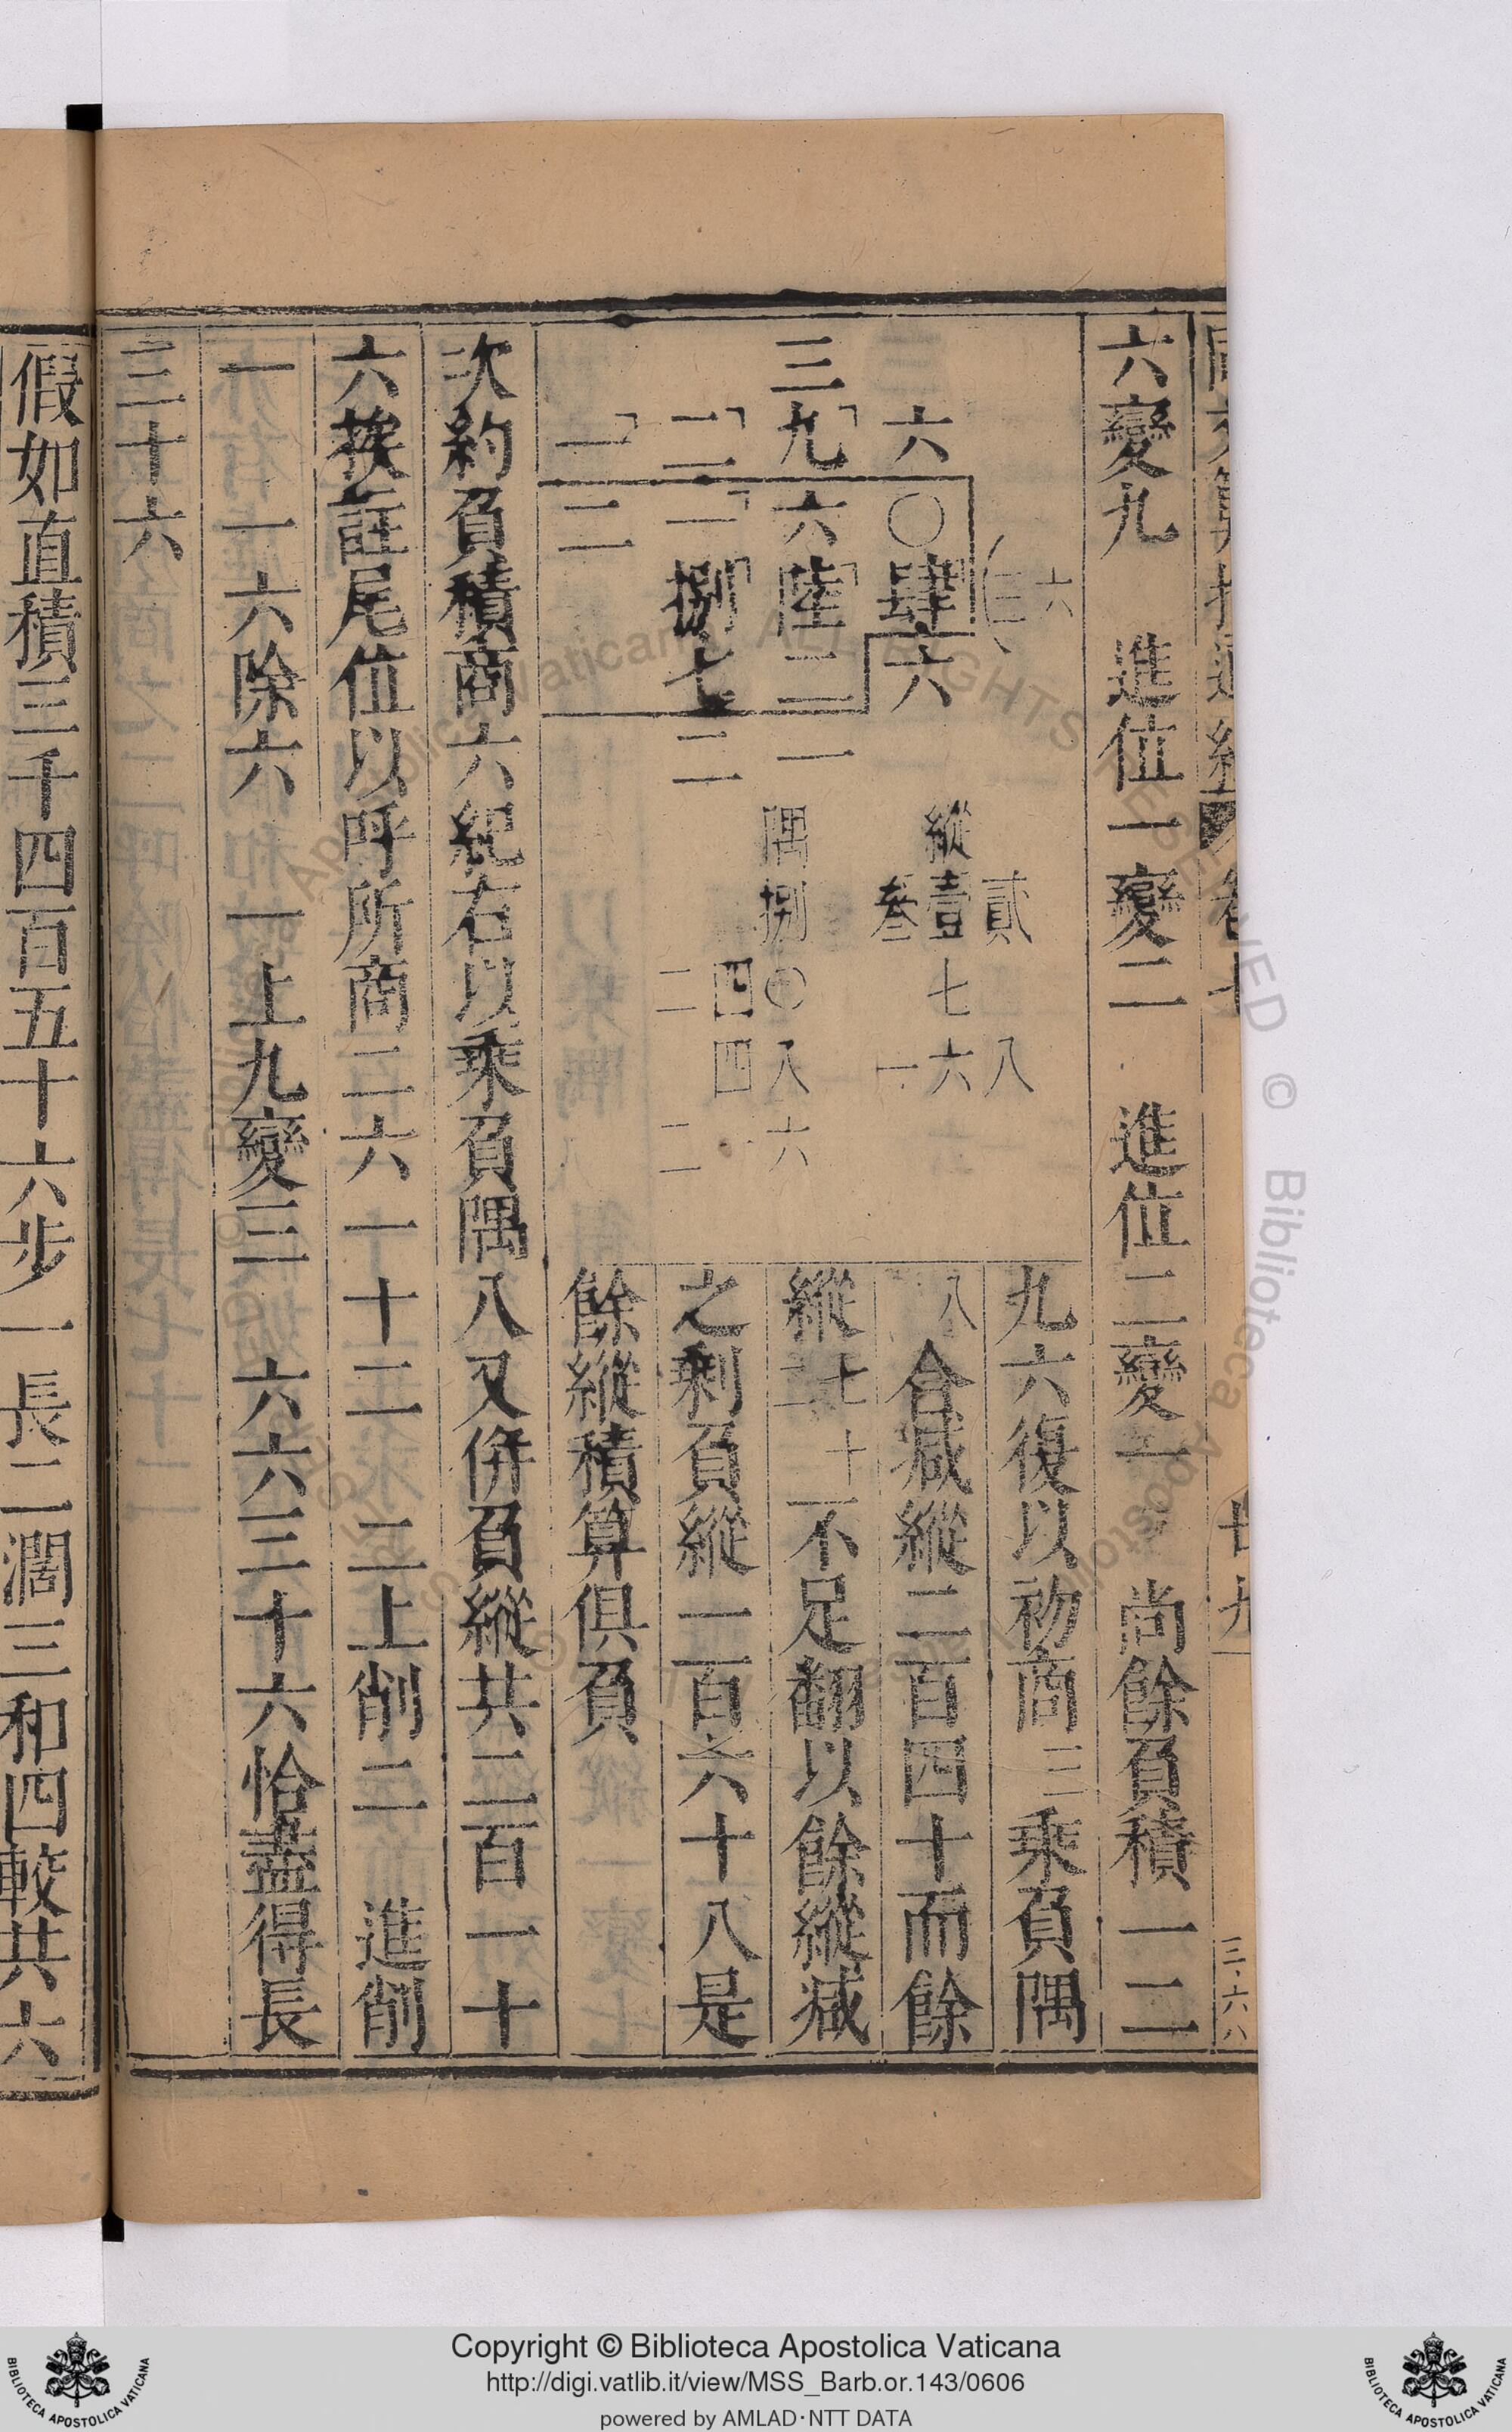 六變九　進位一變二　進位二變一　尚餘負積一二
三九六陸二一
六〇肆六
二一捌七二
一二
縱壹七六
貳八
叁一
隅捌〇八六
四四
二二
九六復以初商三乘負隅
八合減縱二百四十而餘
縱七十二不足翻以餘縱減
之剩負縱一百六十八是
餘縱積算俱負
次約負積商六紀右以乘負隅八又併負縱共二百一十
六挨註尾位以呼所商二六一十二　二上削二　進削
一　一六除六　一上九變三　六六三十六恰盡得長
三十六
假如直積三千四百五十六步一長二濶三和四較共六
Copyright © Biblioteca Apostolica Vaticana
http://digi.vatlib.it/view/MSS_Barb.or.143/0606
powered by AMLAD·NTT DATA
BIBLIOTECA APOSTOLICA VATICANA
BIBLIOTECA APOSTOLICA VATICANA